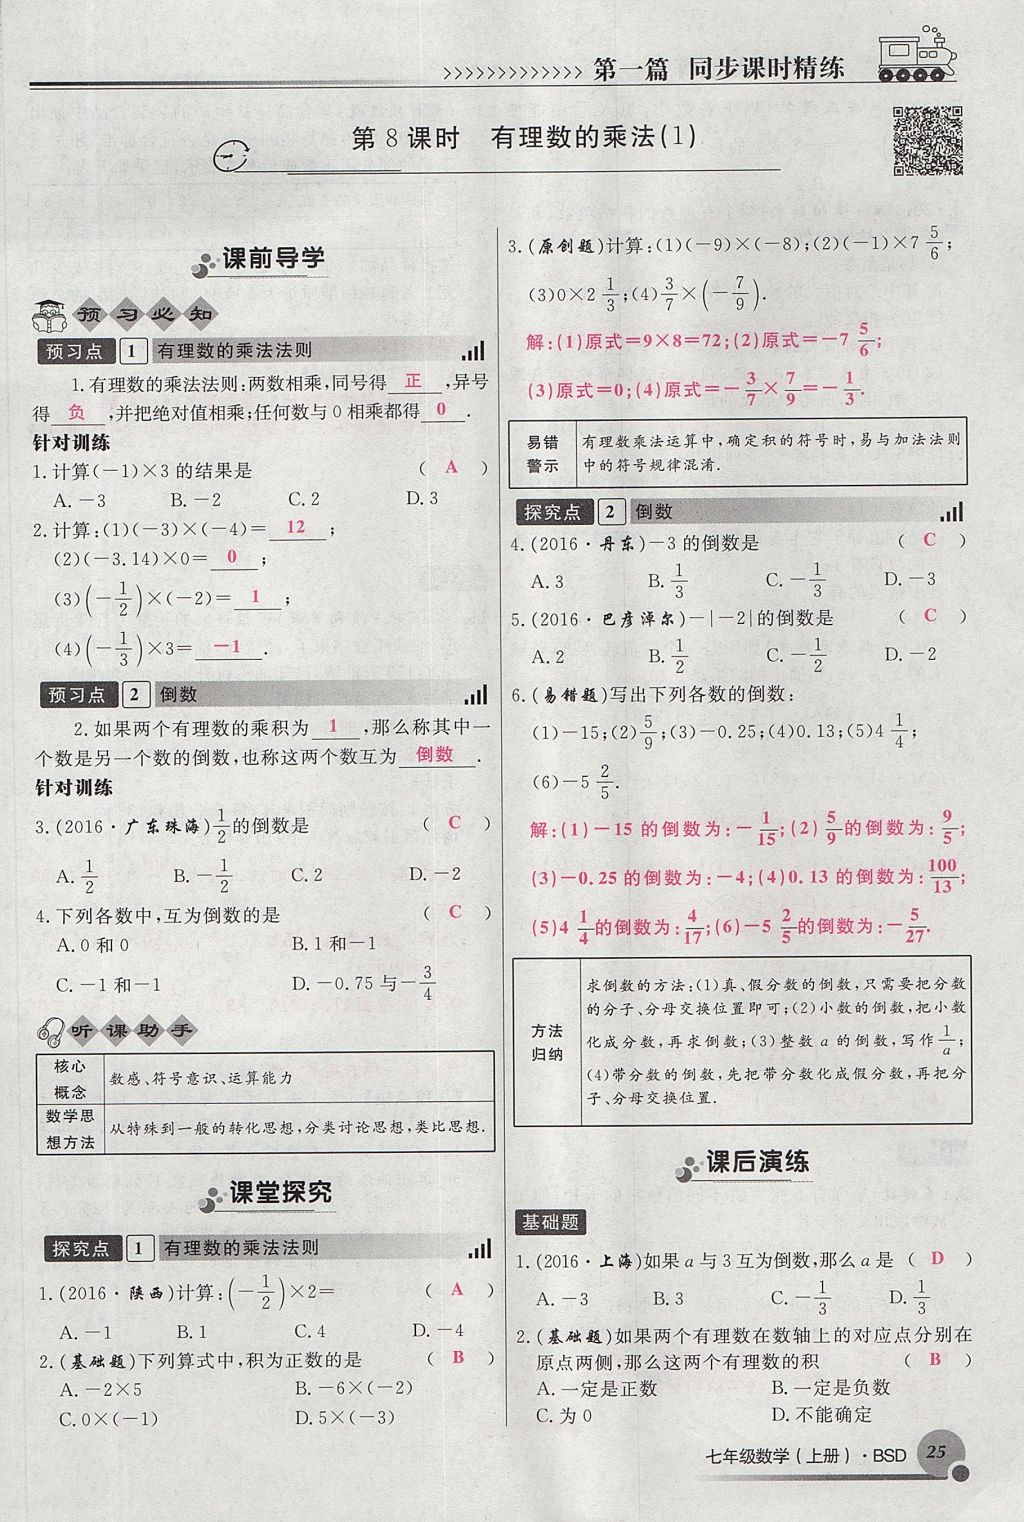 第一篇 同步课时精练
第 8 课时 有理数的乘法(1)
课前导学
预习必知
预习点 1 有理数的乘法法则
1.有理数的乘法法则:两数相乘,同号得 正 ,异号
得 负 ,并把绝对值相乘;任何数与 0 相乘都得 0 .
针对训练
1.计算(-1)×3 的结果是 ( A )
A.-3 B.-2 C.2 D.3
2.计算:(1)(-3)×(-4)= 12 ;
(2)(-3.14)×0= 0 ;
(3)(-1/2)×(-2)= 1 ;
(4)(-1/3)×3= -1 .
预习点 2 倒数
2.如果两个有理数的乘积为 1 ,那么称其中一
个数是另一个数的倒数,也称这两个数互为 倒数 .
针对训练
3.(2016·广东珠海)1/2的倒数是 ( C )
A.1/2 B.-1/2 C.2 D.-2
4.下列各数中,互为倒数的是 ( C )
A.0 和 0 B.1 和-1
C.-1 和-1 D.-0.75 与-3/4
听课助手
核心
概念
数感、符号意识、运算能力
数学思
想方法
从特殊到一般的转化思想,分类讨论思想,类比思想.
课堂探究
探究点 1 有理数的乘法法则
1.(2016·陕西)计算:(-1/2)×2= ( A )
A.-1 B.1 C.4 D.-4
2.(基础题)下列算式中,积为正数的是 ( B )
A.-2×5 B.-6×(-2)
C.0×(-1) D.5×(-3)
3.(原创题)计算:(1)(-9)×(-8);(2)(-1)×7 5/6;
(3)0×2 1/3;(4)3/7×(-7/9).
解:(1)原式=9×8=72;(2)原式=-7 5/6;
(3)原式=0;(4)原式=-3/7×7/9=-1/3.
易错
警示
有理数乘法运算中,确定积的符号时,易与加法法则
中的符号规律混淆.
探究点 2 倒数
4.(2016·丹东)-3 的倒数是 ( C )
A.3 B.1/3 C.-1/3 D.-3
5.(2016·巴彦淖尔)-|-2|的倒数是 ( C )
A.2 B.1/2 C.-1/2 D.-2
6.(易错题)写出下列各数的倒数:
(1)-15;(2)5/9;(3)-0.25;(4)0.13;(5)4 1/4;
(6)-5 2/5.
解:(1)-15 的倒数为:-1/15;(2)5/9的倒数为:9/5;
(3)-0.25 的倒数为:-4;(4)0.13 的倒数为:100/13;
(5)4 1/4的倒数为:4/17;(6)-5 2/5的倒数为:-5/27.
方法
归纳
求倒数的方法:(1)真、假分数的倒数,只需要把分数
的分子、分母交换位置即可;(2)小数的倒数,把小数
化成分数,再求倒数;(3)整数 a 的倒数,写作1/a;
(4)带分数的倒数,先把带分数化成假分数,再把分
子、分母交换位置.
课后演练
基础题
1.(2016·上海)如果 a 与 3 互为倒数,那么 a 是 ( D )
A.-3 B.3 C.-1/3 D.1/3
2.(基础题)如果两个有理数在数轴上的对应点分别在
原点两侧,那么这两个有理数的积 ( B )
A.一定是正数 B.一定是负数
C.为 0 D.不能确定
七年级数学(上册)·BSD 25